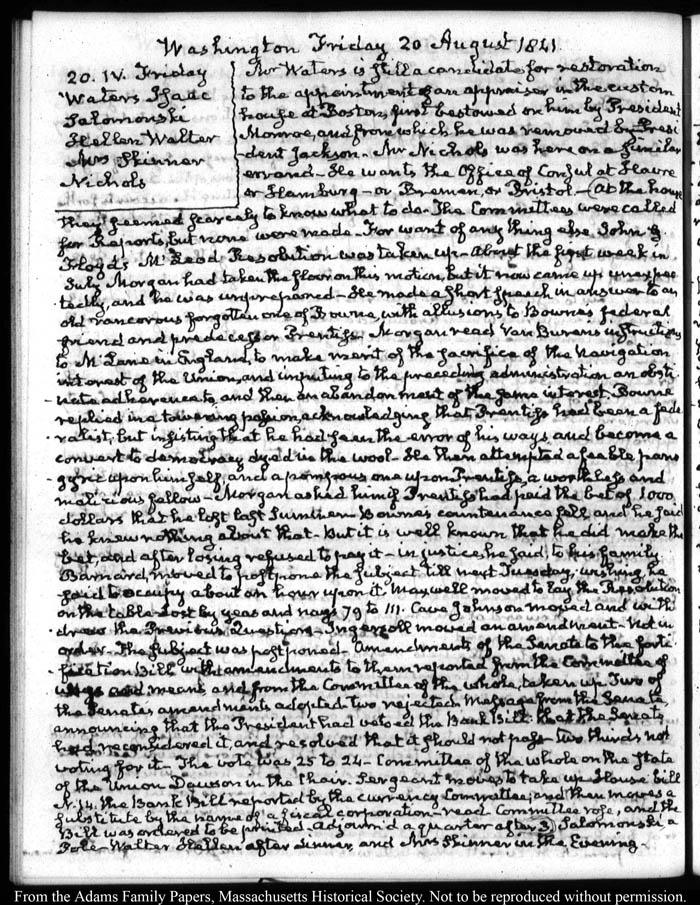 Washington Friday 20 August 1841.
20. IV. Friday
Waters Isaac
Salomonski
Hellen Walter
Mrs Skinner
Nichols
Mr Waters is still a candidate for restoration
to the appointment of an appraiser in the custom
house at Boston, first bestowed on him by President
Monroe, and from which he was removed by Presi
dent Jackson. Mr Nichols was here on a similar
errand – He wants the Office of Consul at Havre
or Hamburg – or Bremen, or Bristol – At the house
they seemed scarcely to know what to do. The Committees were called
for Reports, but none were made – For want of any thing else John G
Floyd's Mc Leod Resolution was taken up – About the first week in
July Morgan had taken the floor on this motion, but it now came up unexpec
tedly, and he was unprepared – He made a short speech in answer to an
old rancorous forgotten one of Bowne, with allusions to Bowne's federal
friend and predecessor Prentiss. Morgan read Van Buren's instructions
to Mc Lane in England, to make merit of the sacrifice of the Navigation
interest of the Union, and imputing to the preceding administration an obsti
nate adherence to, and then an abandonment of the same interest. Bowne
replied in a towering passion, acknowledging that Prentiss had been a fede
ralist, but insisting that he had seen the error of his ways and become a
convert to democracy dyed in the wool – He then attempted a feeble pane
gyric upon himself, and a pompous one upon Prentiss, a worthless and
malicious fellow – Morgan asked him if Prentiss had paid the bet of 1000
dollars that he lost last Summer – Bowne's countenance fell, and he said
he knew nothing about that – But it is well known that he did make the
bet, and after losing refused to pay it – in justice, he said, to his family
Barnard, moved to postpone the subject till next Tuesday, wishing, he
said to occupy about an hour upon it. Maxwell moved to lay the Resolution
on the table – Lost by yeas and nays 79 to 111. Cave Johnson moved and with
drew the Previous Question – Ingersoll moved an amendment – Not in
order – The subject was postponed – Amendments of the Senate to the forti
fication Bill with amendments to them reported from the Committee of
ways and means and from the Committee of the whole, taken up. Two of
the Senate's amendments adopted two rejected. Message from the Senate,
announcing that the President had vetoed the Bank Bill. that the Senate
had reconsidered it, and resolved that it should not pass – two thirds not
voting for it – The vote was 25 to 24 – Committee of the whole on the State
of the Union Dawson in the Chair. Sergeant moves to take up House bill
N. 14. the Bank Bill reported by the currency Committee, and then moves a
substitute by the name of a fiscal corporation – read Committee rose, and the
Bill was ordered to be printed – Adjourn'd a quarter after 3. Salomonski a
Pole – Walter Hellen after dinner, and Mrs Skinner in the Evening –
From the Adams Family Papers, Massachusetts Historical Society. Not to be reproduced without permission.